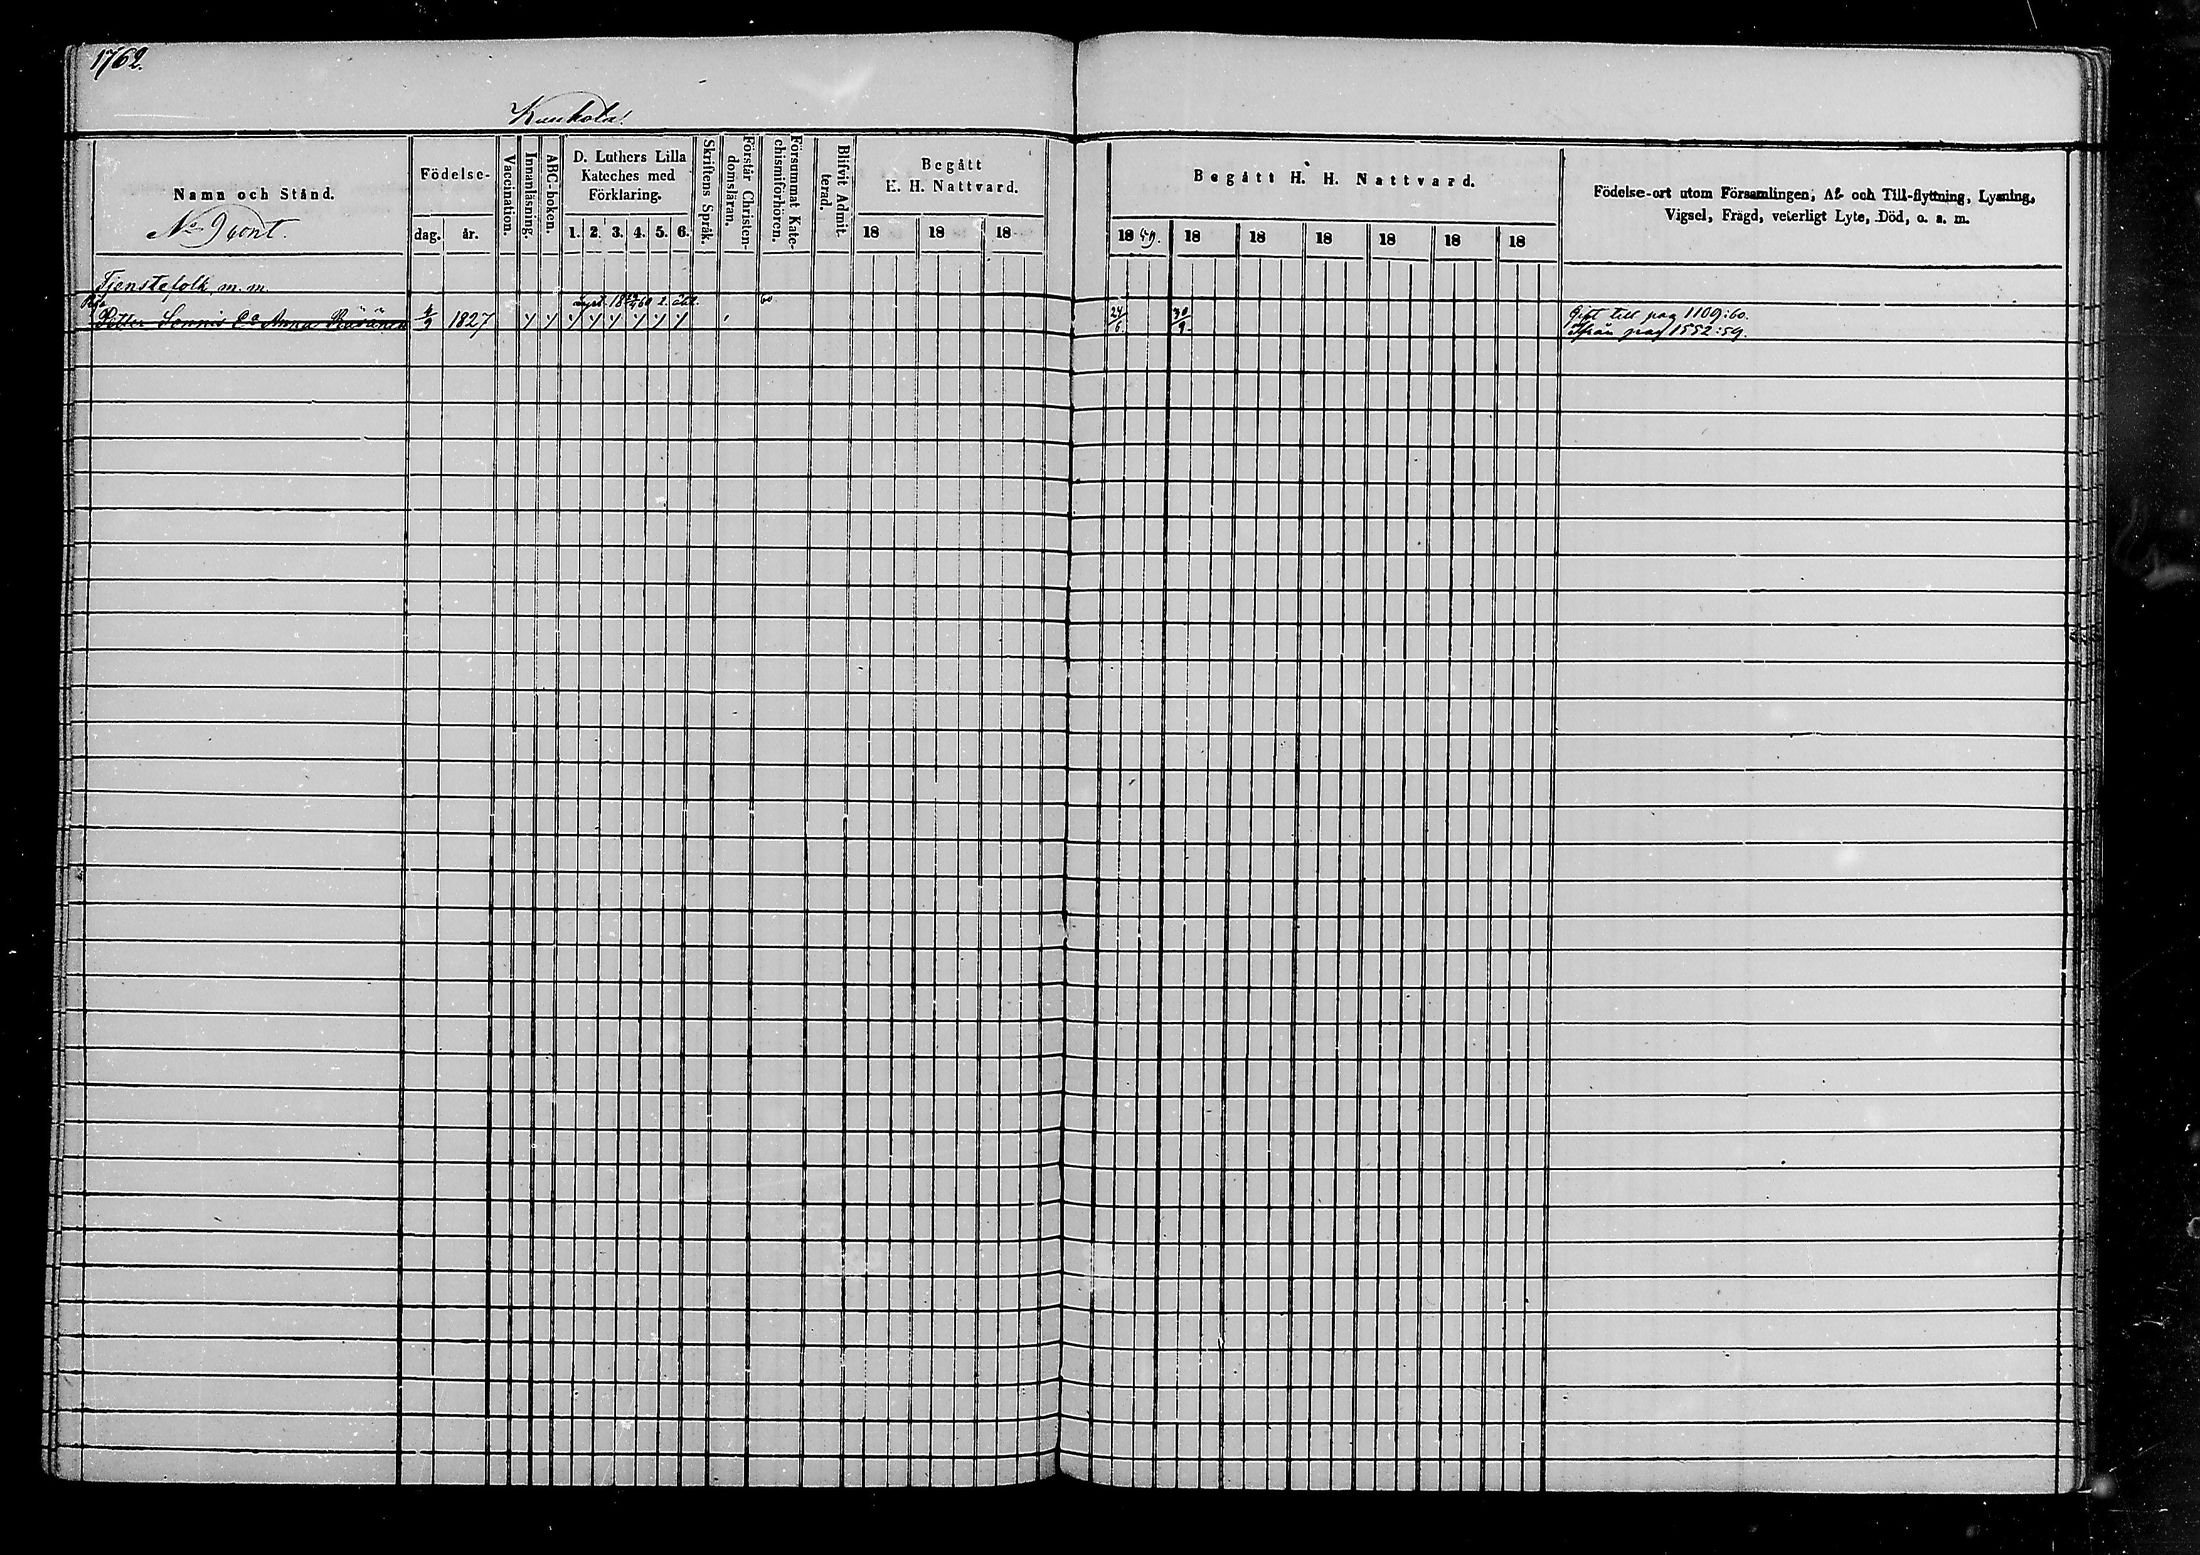 1762.
Kunkola!
Namn och Stånd.
No 9 cont.
Födelse-
dag. år.
Vaccination.
Innanläsning.
ABC-boken.
D. Luthers Lilla
Kateches med
Förklaring.
1. 2. 3. 4. 5. 6.
Skriftens Språk.
Förstår Christen-
domsläran.
Försummat Kate-
chismiförhören.
Blifvit Admit-
terad.
Begått
H. H. Nattvard.
18 18 18
Begått H. H. Nattvard.
18 59. 18 18 18 18 18 18
Födelse-ort utom Församlingen, Af- och Till-flyttning, Lysning,
Vigsel, Frägd, veterligt Lyte, Död, o. s. m.
Tjenstefolk m. m.
60
Anna Räsänen 1827
24/6 30/9
Gift till pag 1109:60.
Ifrån pag 1552:59.